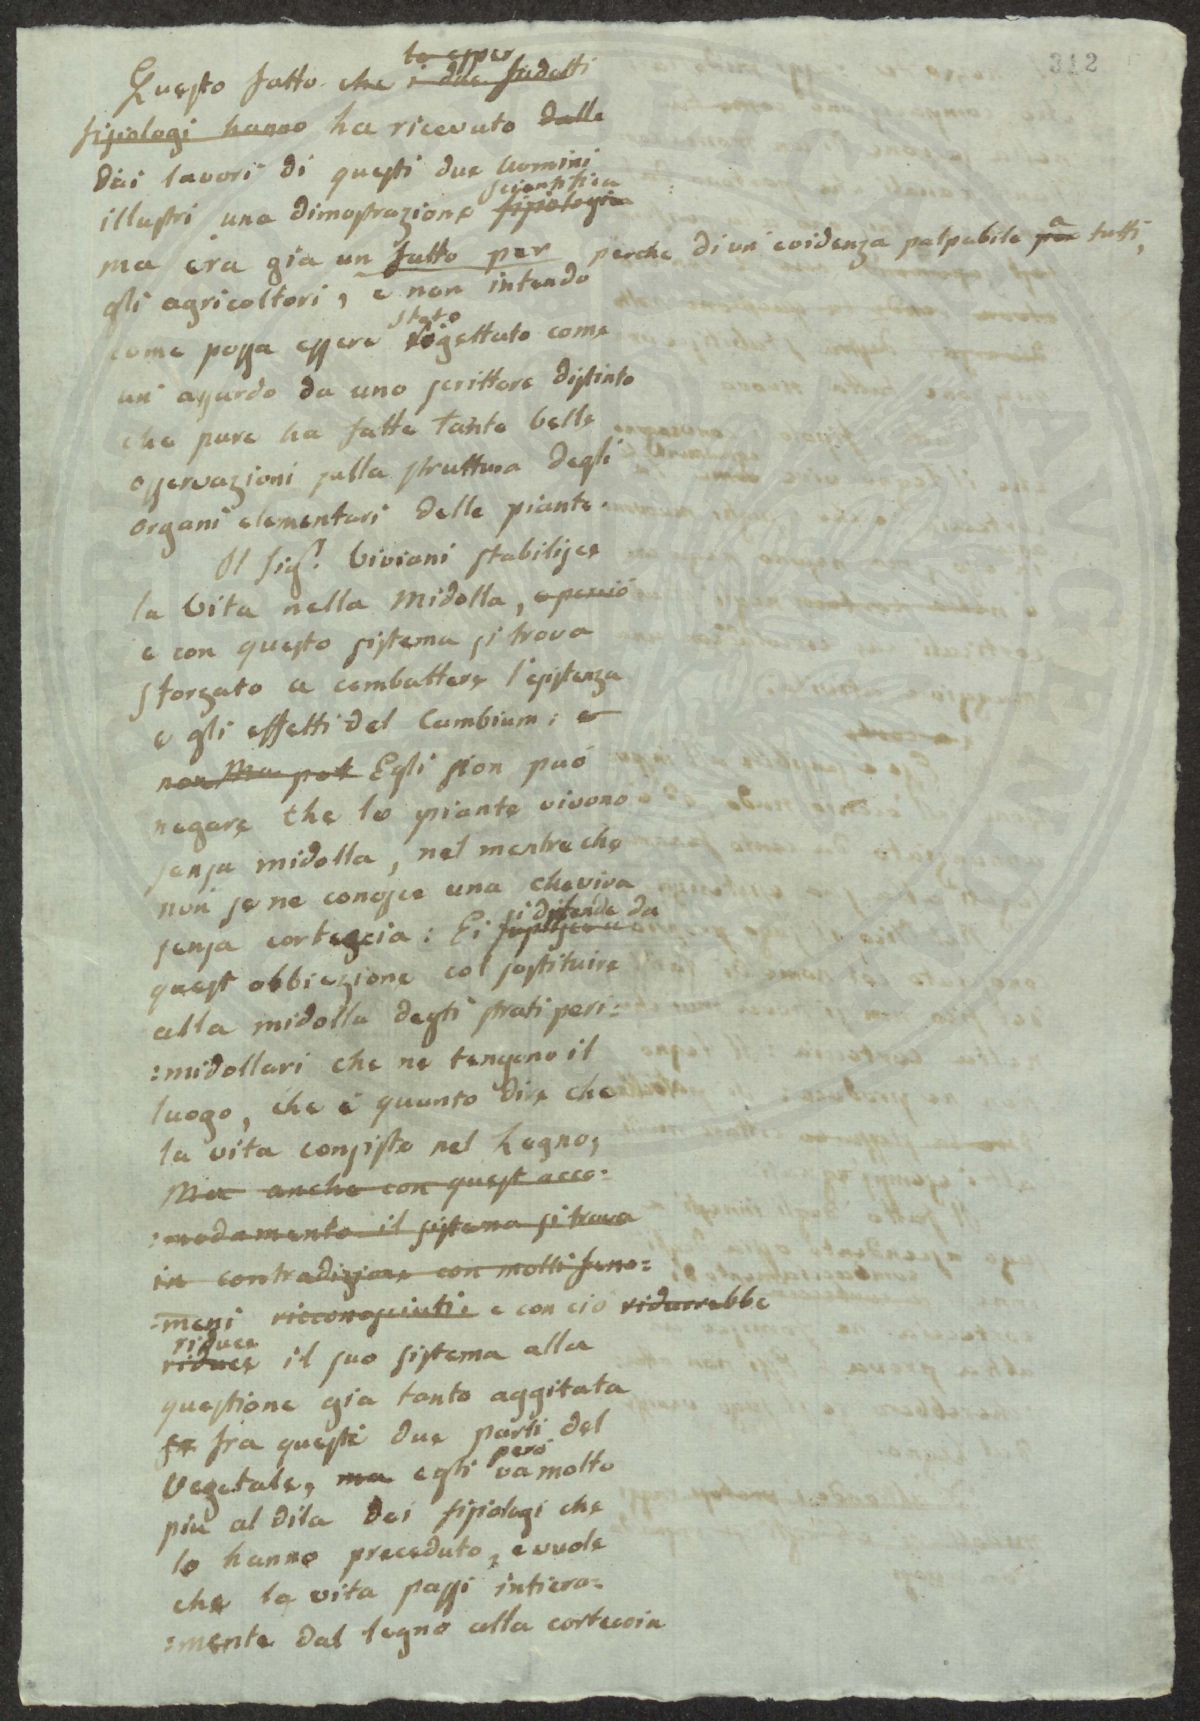 312
le esper
Questo fatto che i due sudetti
fisiologi hanno ha ricevuto dalle
dai lavori di questi due Uomini
scientifica
illustri una dimostrazione fisiologia
ma era già un fatto per perche di un' evidenza palpabile per a tutti,
gli agricoltori, e non intendo
stato
come possa essere rigettato come
un assurdo da uno scrittore distinto
che pure ha fatte tante belle
osservazioni sulla struttura degli
organi elementari delle piante.
Il Sig.r Viviani stabilisce
la Vita nella Midolla, e perciò
e con questo sistema si trova
sforzato a combattere l'esistenza
e gli effetti del Cambium: e
non Ma pot Egli non può
negare che le piante vivono
senza midolla, nel mentre che
non se ne conosce una che viva
si difende da
senza corteccia: Ei
quest obbiezione col sostituire
alla midolla degli strati peri=
=midollari che ne tengono il
luogo, che è quanto dire che
la vita consiste nel Legno,
Ma anche con quest acco=
=modamento il sistema si trova
in contradizione con molti feno=
=meni riconosciuti e con cio ridurrebbe
riduce
riduce il suo sistema alla
questione gia tanto aggitata
fr fra queste due parti del
però
Vegetale, ma egli va molto
piu al dila dei fisiologi che
lo hanno preceduto, e vuole
che la vita passi intiera=
=mente dal legno alla corteccia